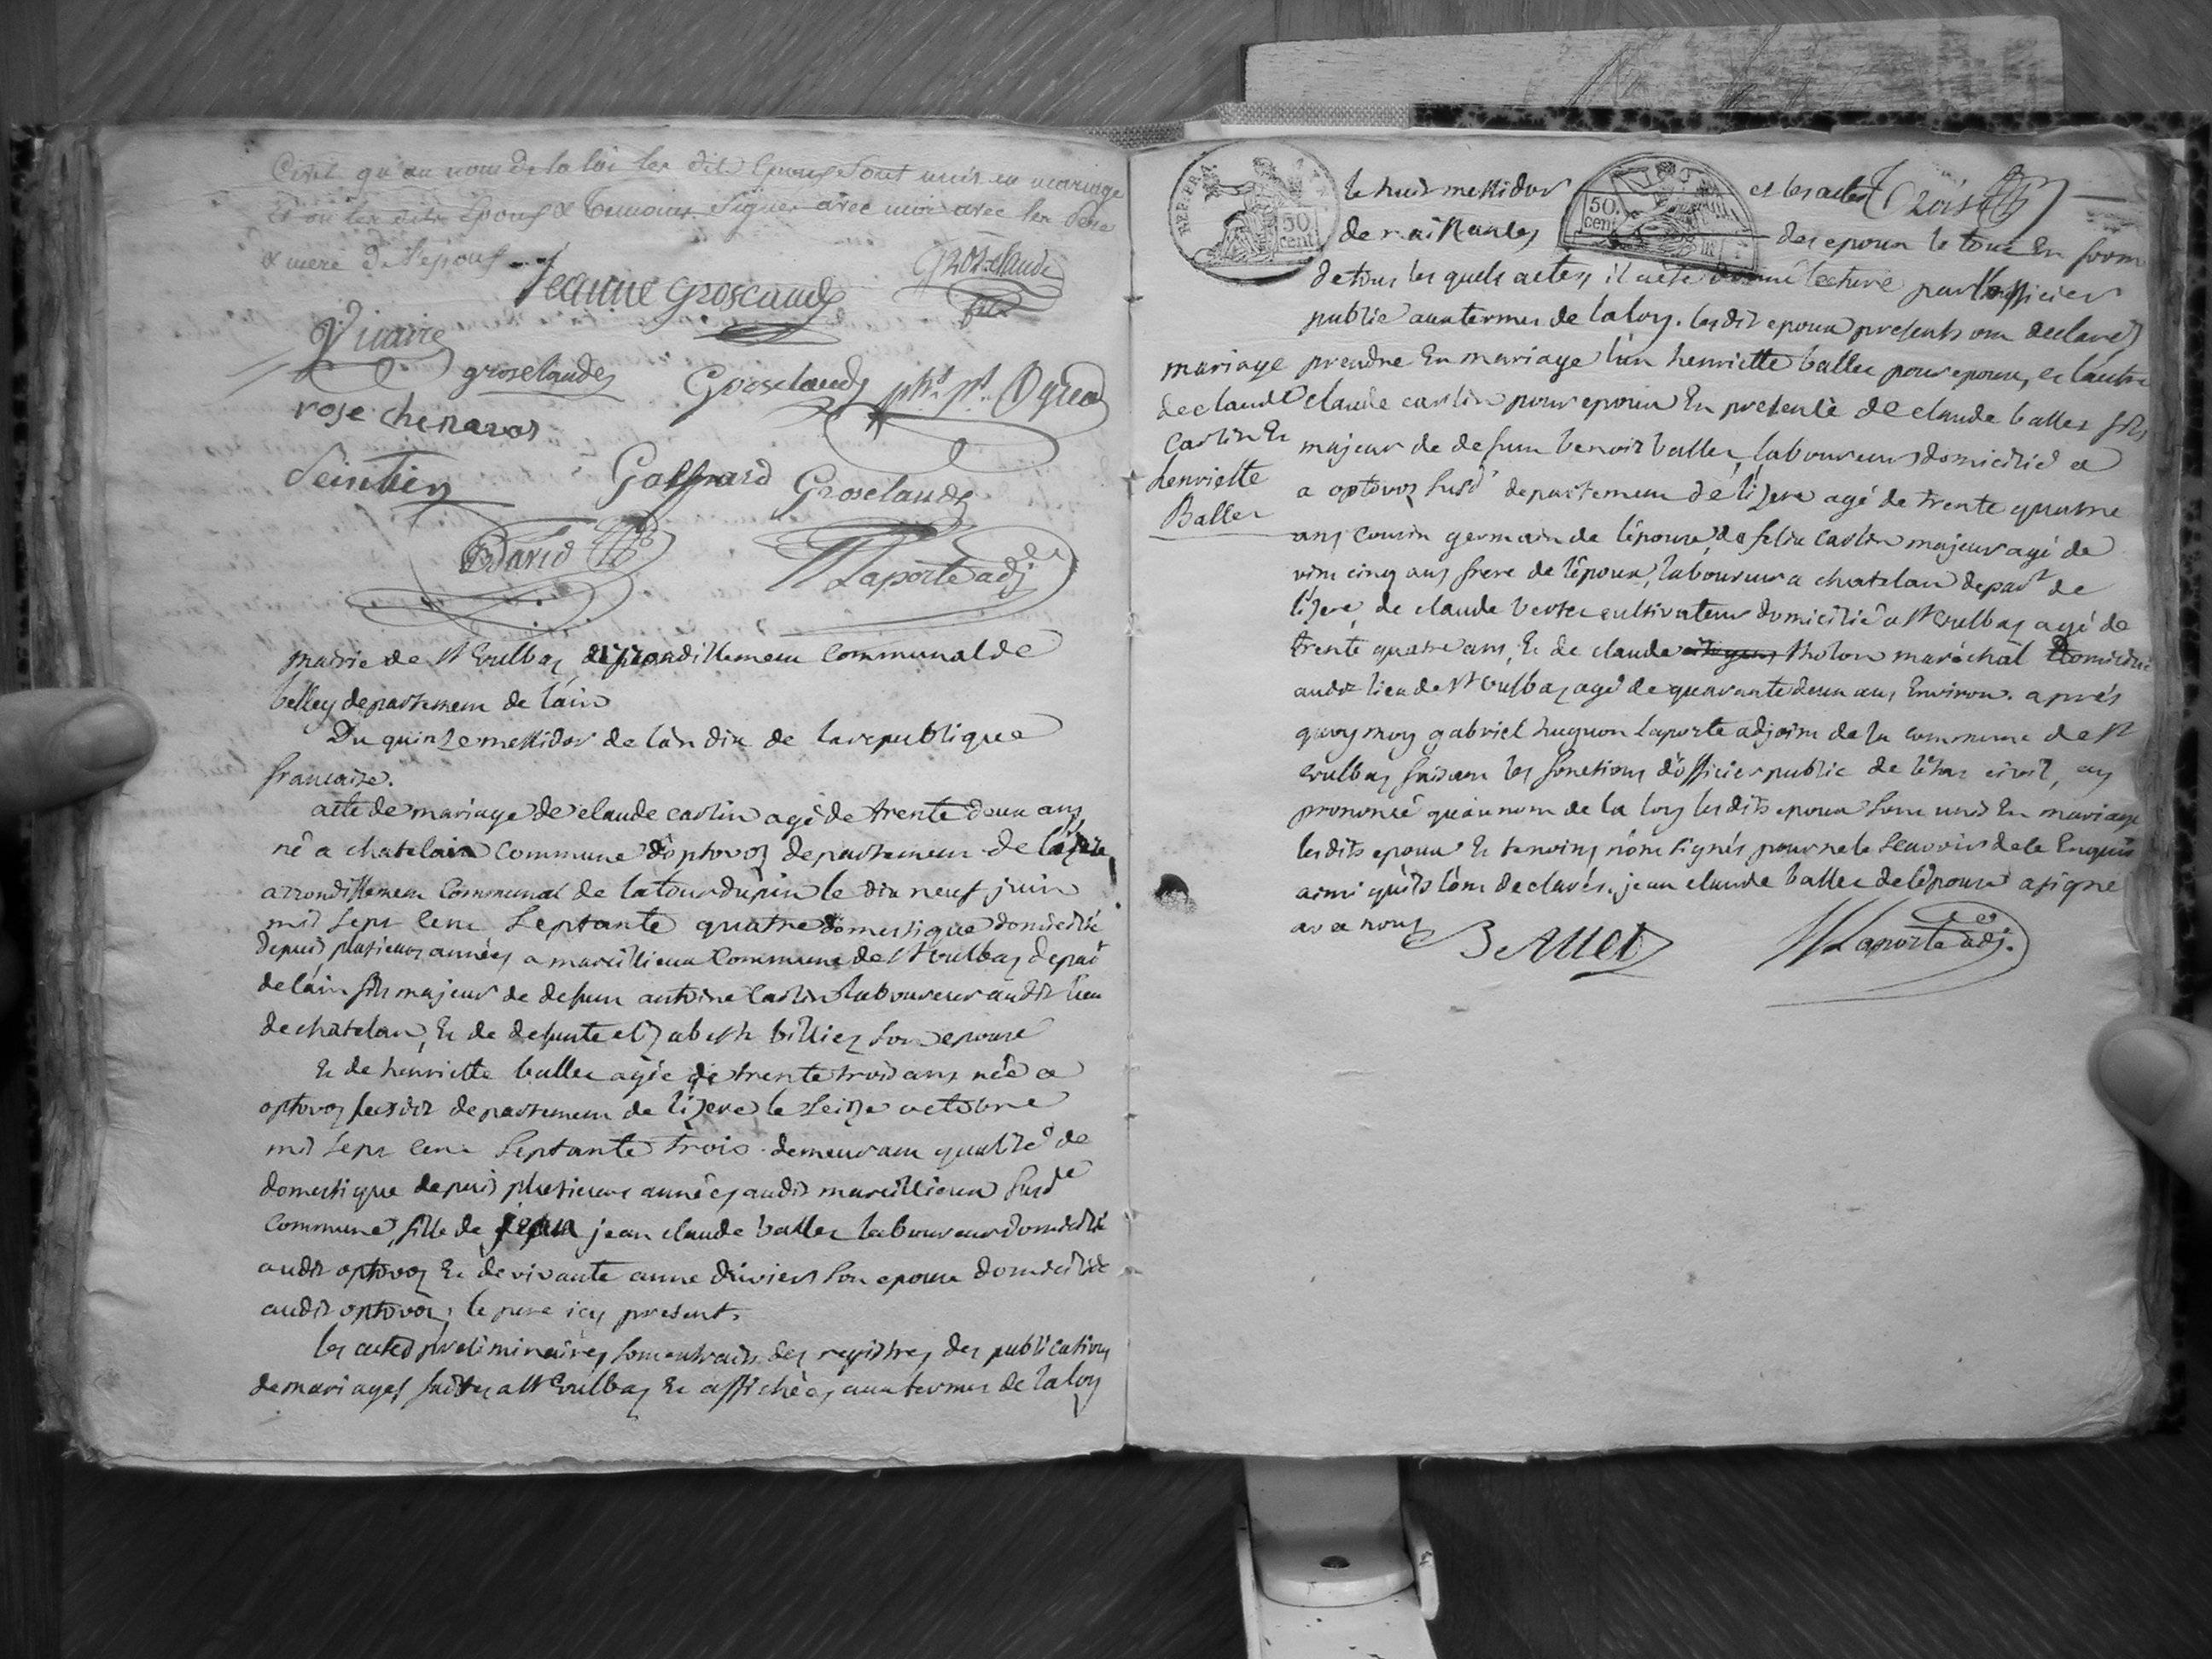 Civil qu'au nom de la loi les dits Epoux sont unis en mariage
et ont les dits Epoux & temoins signer avec moi avec les père
& mere de l'epoux
Jeanne Groscaude
Groselaude
fils
Vicaire
groselaudes
Groselaude
rose chenavas
Seintier
Gaspard
Groselaude
David
Laporte adj
mairie de St Vulbaz arrondissement Communal de
belley departement de lain
Du quinze messidor de lan dix de la republique
francaise.
acte de mariage de claude carlin agé de trente deux ans
né a chatelain commune d'optovoz departement de l'izere
arrondissement Communal de la tour dupin le dix neuf juin
mil sept cent septante quatre domestique domicilié
depuis plusieurs années a marcillieux Commune de St Vulbaz depart
de lain fils majeur de defunt antoine Carlin laboureur audit lieu
de chatelan, Et de defunte elizabeth billiez son epouse
Et de henriette ballet agée de trente trois ans née a
optovoz susdit departement de lizere le seize octobre
mil sept cent septante trois demeurant qualité de
domestique depuis plusieurs années audit marcillieux susde
Commune, fille de jean claude ballet laboureur domicilié
audit optovoz Et de vivante anne duviert son epouse domiciliée
audit optovoz, le pere icy present.
les actes preliminaires sont extraits des registres des publications
de mariages faites a St Vulbaz Et affichées aux termes de la loy
REP. FRA.
50 cent
le huit messidor
50. cent
et les actes
de naissances
des epoux le tout En forme
de tous les quels actes il a été donné lecture par l'officier
public aux termes de la loy. lesdits epoux presents ont declaré
mariage
de claude
Carlin Et
henriette
Ballet
prendre En mariage l'un henriette ballet pour epouse, et l'autre
claude carlin pour epoux En presence de claude ballet fils
majeur de defunt benoit ballet, laboureur domicilié a
a optovoz susd departement de lizere agé de trente quatre
ans cousin germain de l'epouse, de felix Carlin majeur agé de
vint cinq ans frere de l'epoux, laboureur a chatelan depart de
lizere, de claude Verter cultivateur domicilié a St Vulbaz agé de
trente quatre ans, Et de claude tholon maréchal domicilié
audit lieu de St Vulbaz agé de quarante deux ans Environ. aprés
quoy moy gabriel huguon Laporte adjoint de la commune de St
Vulbaz faisant les fonctions d'officier public de l'etat civil, ay
prononcé qu'au nom de la loy lesdits epoux sont unis En mariage
lesdits epoux Et temoins n'ont signés pour ne le scavoir de ce Enquis
ainsi qu'ils l'ont declarés. jean claude ballet de l'epouse a signé
avec nous
BAllet
Laporte adj.